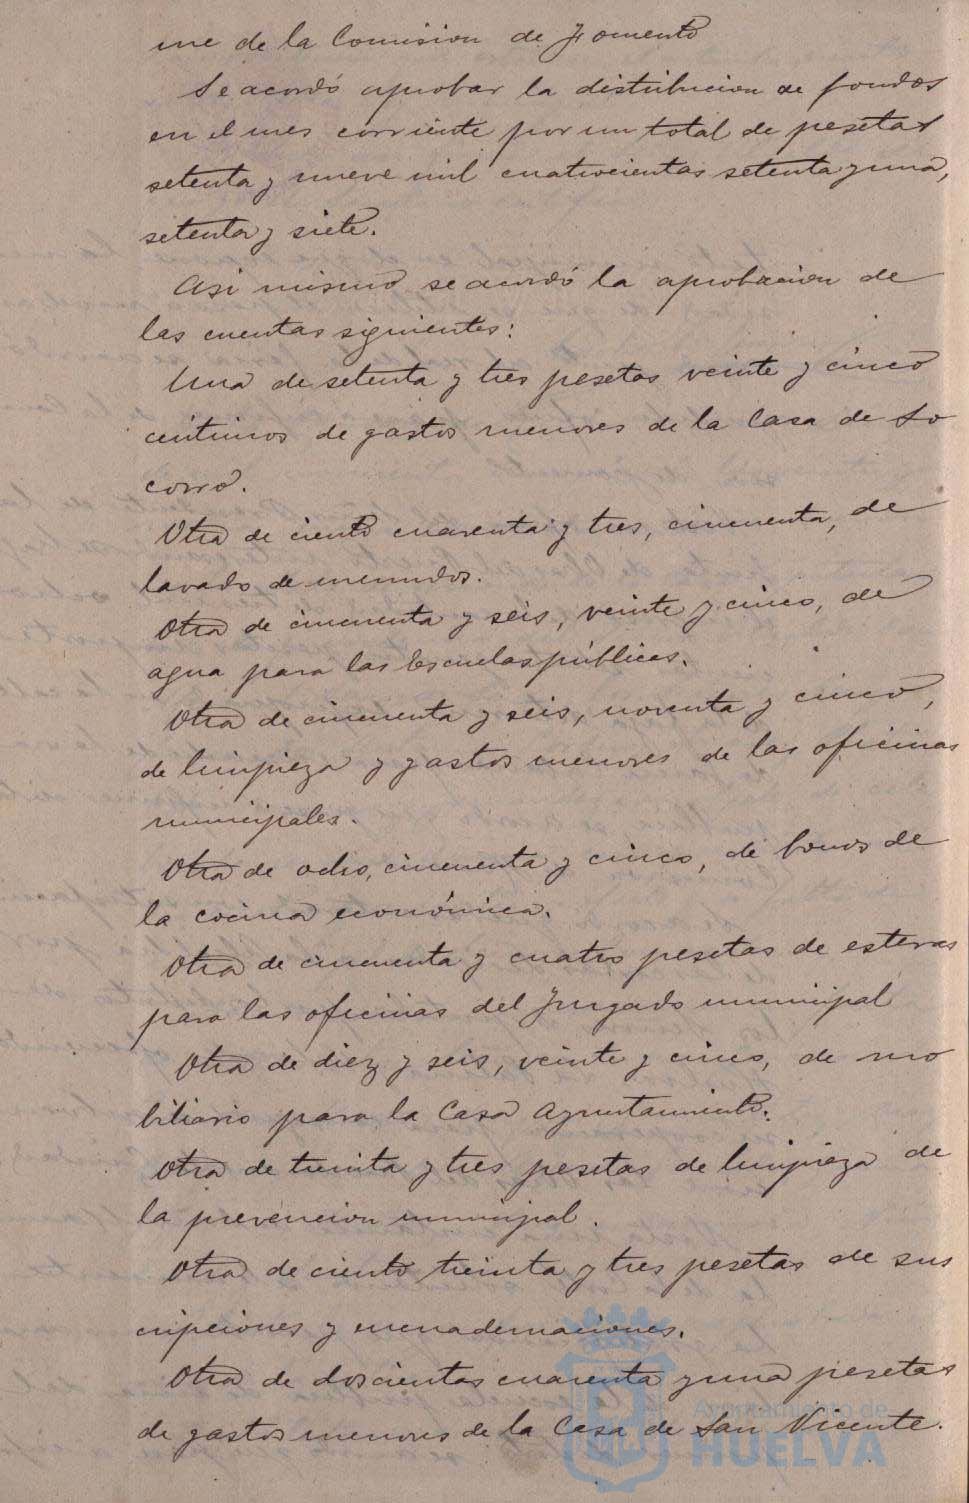 me de la Comision de Fomento
Se acordó aprobar la distribucion de fondos
en el mes corriente por un total de pesetas
setenta y nueve mil cuatrocientas setenta y una,
setenta y siete.
Asi mismo se acordó la aprobacion de
las cuentas siguientes:
Una de setenta y tres pesetas veinte y cinco
céntimos de gastos menores de la Casa de So
corro.
Otra de ciento cuarenta y tres, cincuenta, de
lavado de menudos.
Otra de cincuenta y seis, veinte y cinco, de
agua para las Escuelas públicas.
Otra de cincuenta y seis, noventa y cinco,
de limpieza y gastos menores de las oficinas
municipales.
Otra de ocho, cincuenta y cinco, de bonos de
la cocina económica.
Otra de cincuenta y cuatro pesetas de esteras
para las oficinas del Juzgado municipal
Otra de diez y seis, veinte y cinco, de mo
biliario para la Casa Ayuntamiento.
Otra de treinta y tres pesetas de limpieza de
la prevencion municipal.
Otra de ciento treinta y tres pesetas de sus
cripciones y encuadernaciones.
Otra de doscientas cuarenta y una pesetas
de gastos menores de la Casa de San Vicente.
Ayuntamiento de
HUELVA